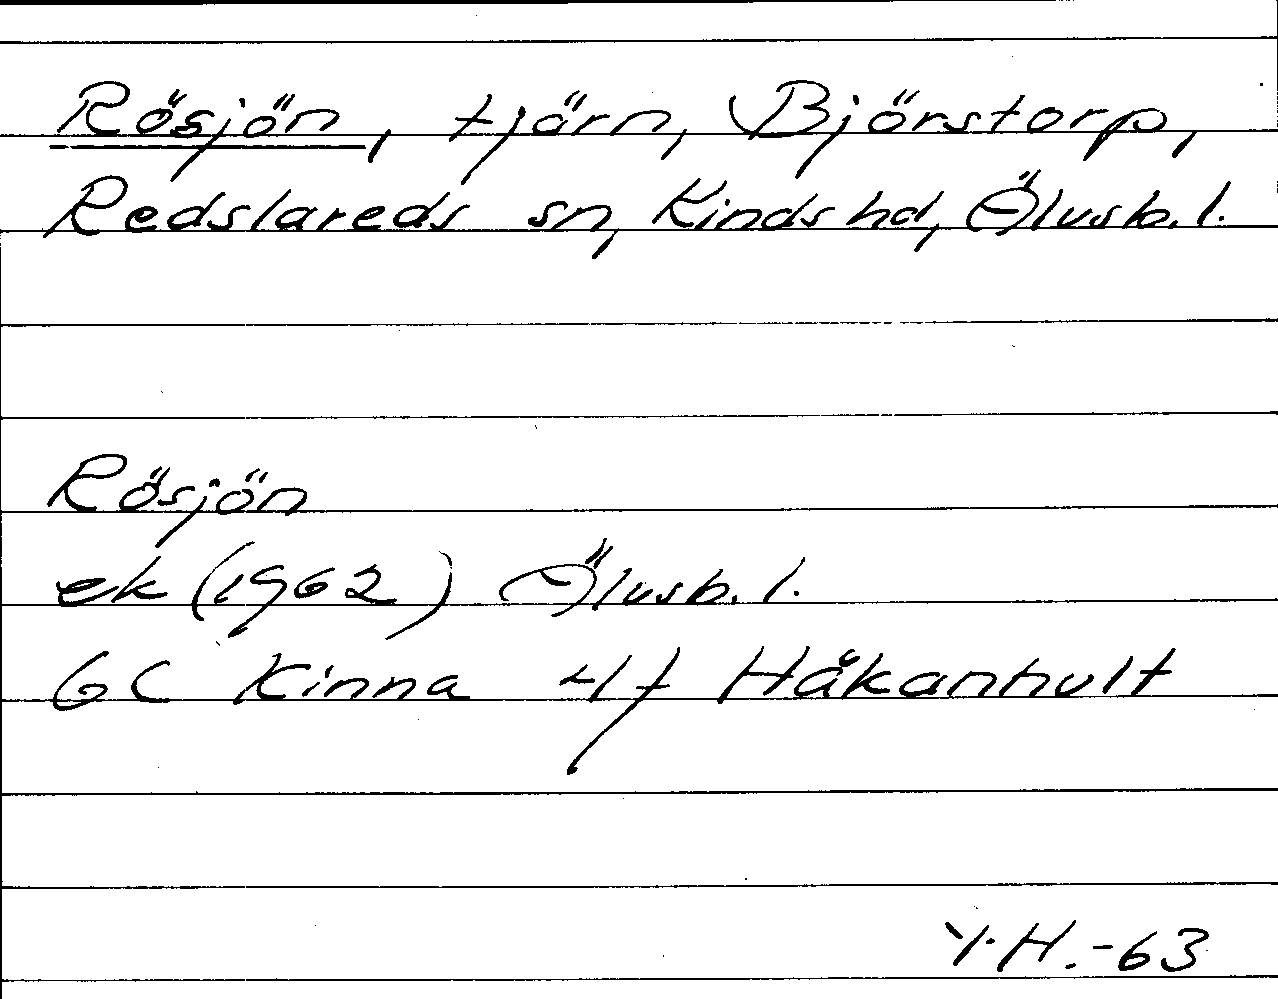 Rösjön, tjärn, Björstorp,
Redslareds sn, Kinds hd, Älvsb. l.
Rösjön
ek (1962) Älvsb. l.
6C Kinna 4f Håkanhult
Y.H. -63